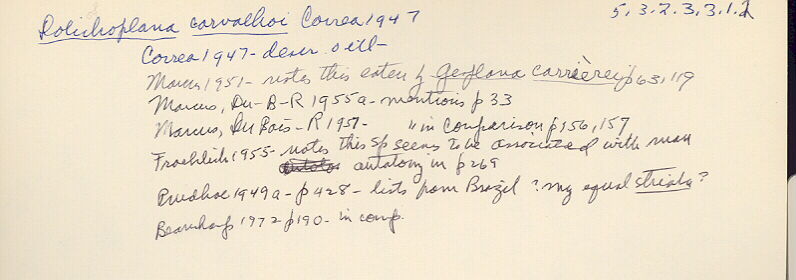 Dolichoplana carvalhoi Correa 1947 5.3.2.3.3.1.2
Correa 1947 - descr. & ill -
Marcus 1951 - notes this eaten by Geoplana carrierei p 63, 119
Marcus, Du-B-R 1955a - mentions p 33
Marcus, Du Bois - R 1951 - " in comparison p 156, 157
Froehlich 1955 - notes this sp seems to be associated with man
autatomy in p 269
Prudhoe 1949a - p 428 - lists from Brazil ? may equal striata ?
Beauchamp 1972 p 190 - in comp.